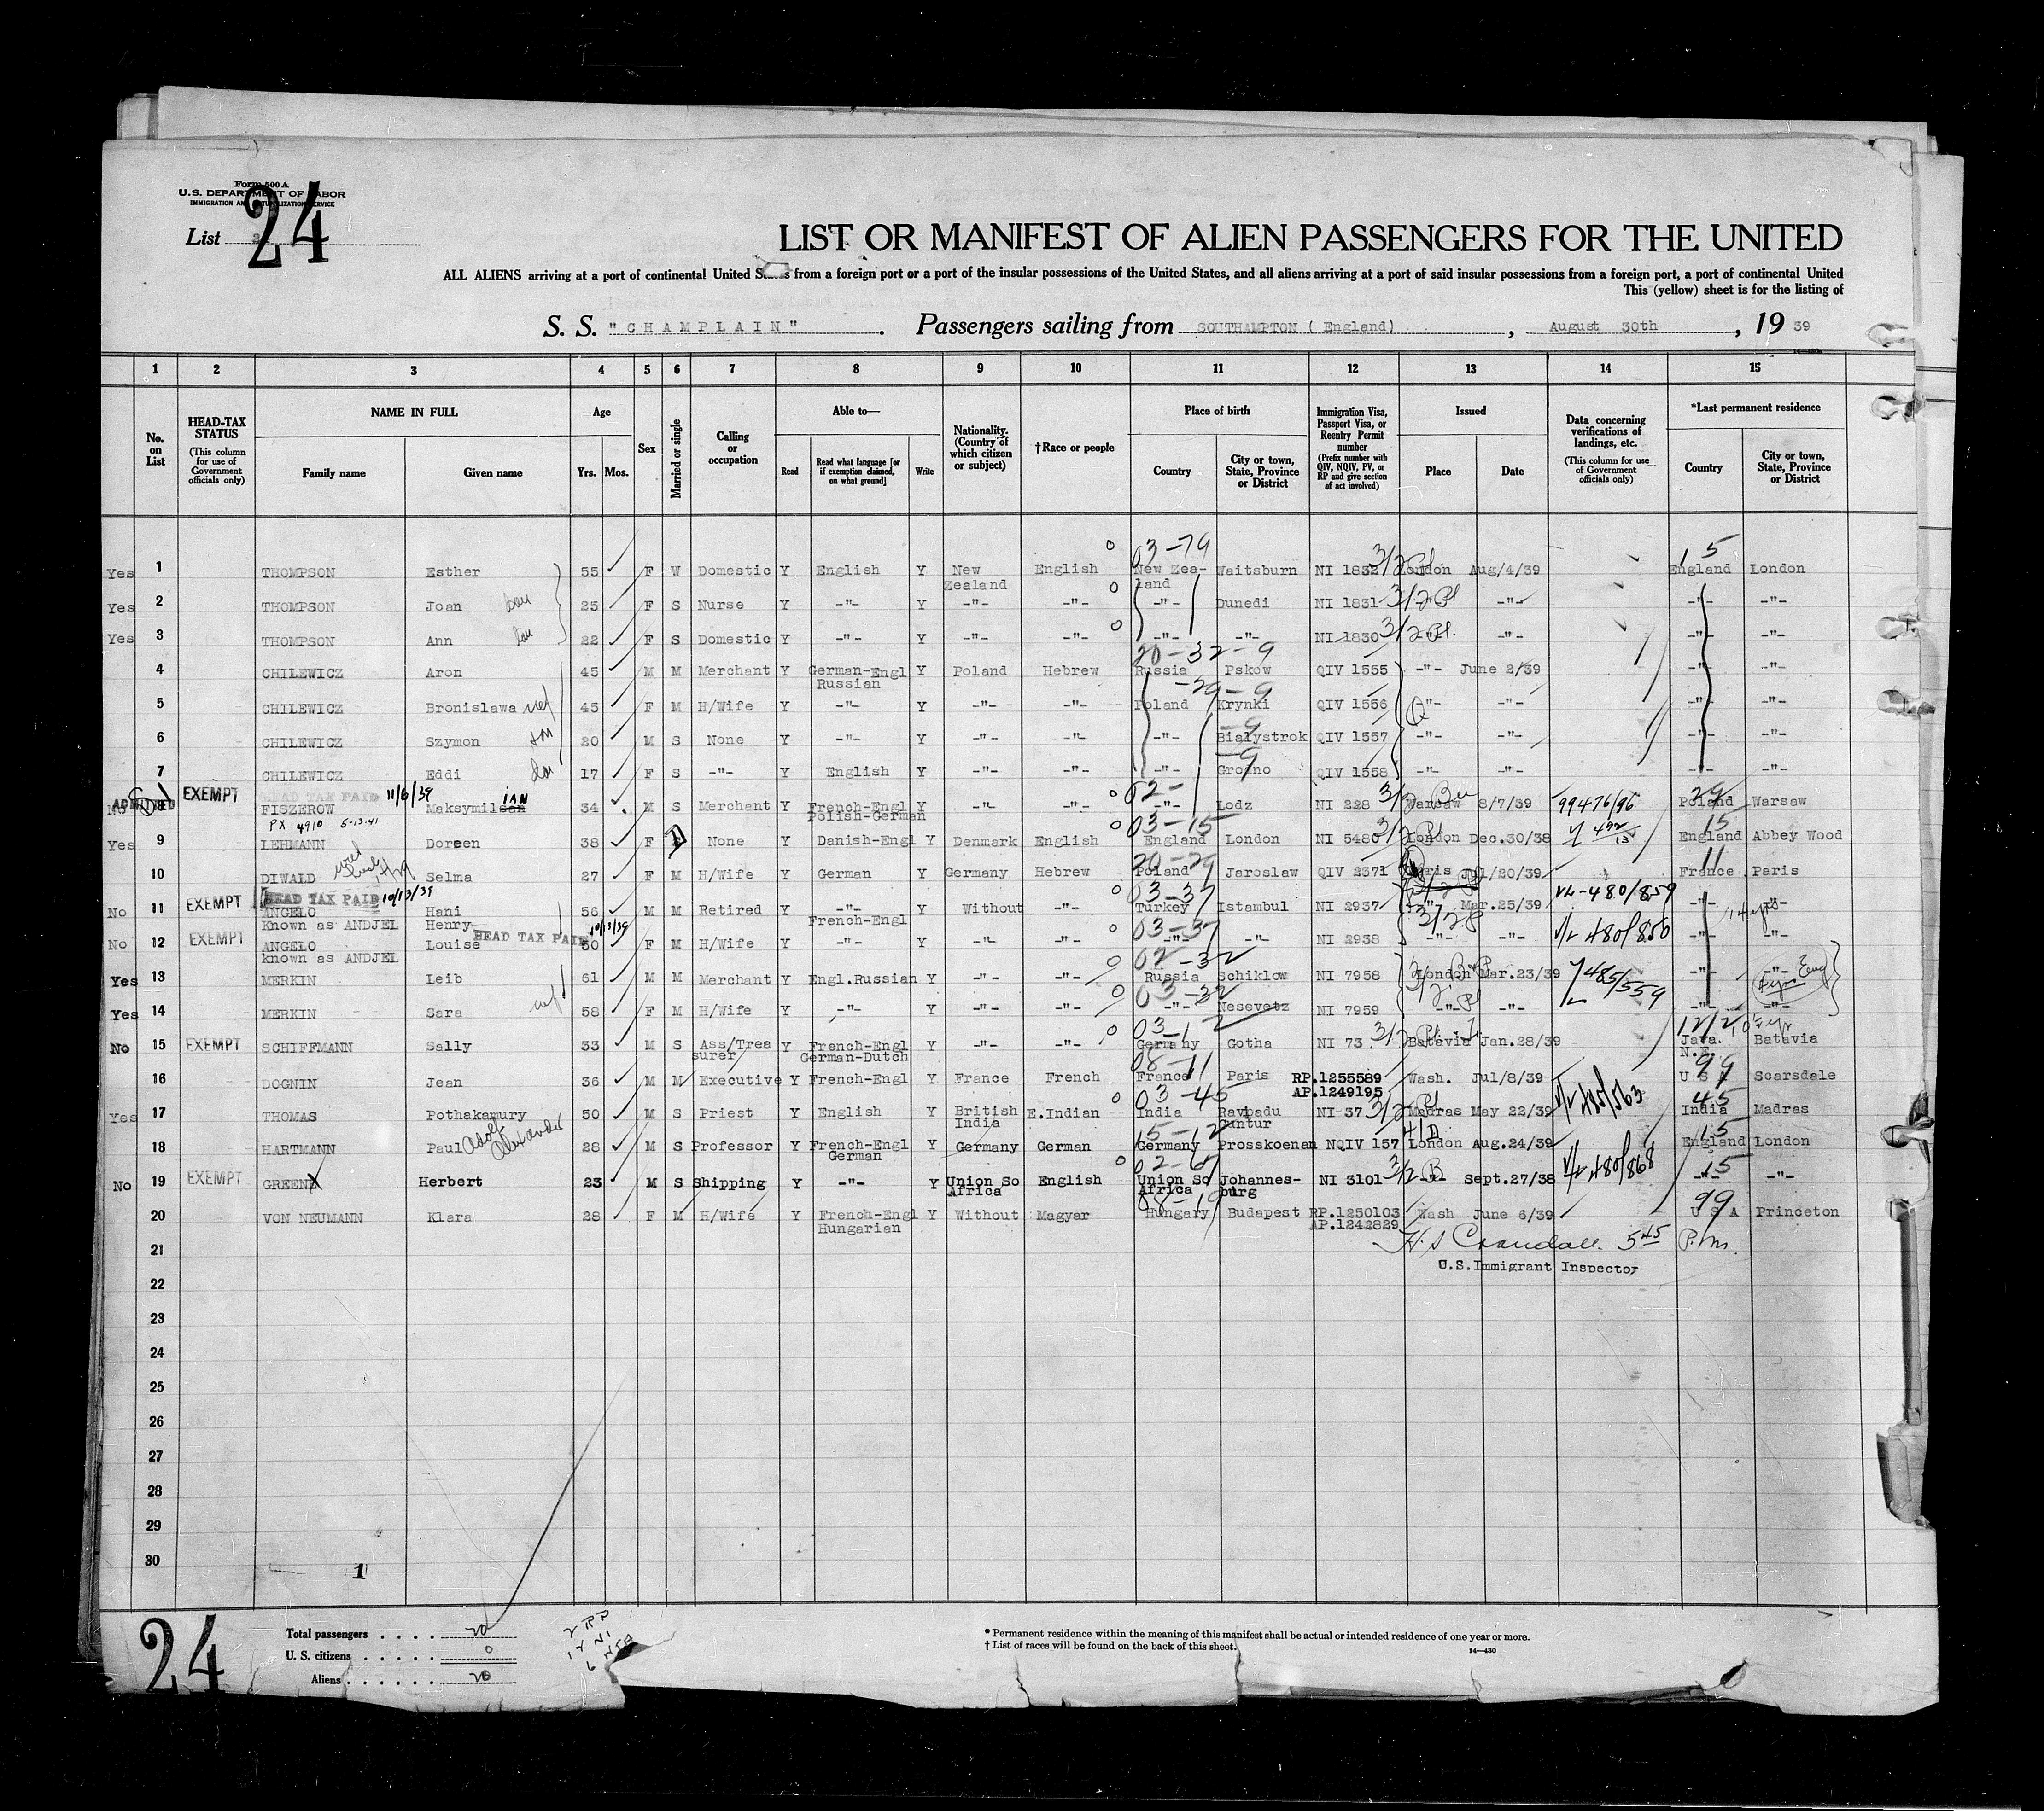 Form 500 A
U.S. DEPARTMENT OF LABOR
IMMIGRATION AND NATURALIZATION SERVICE
List 24
LIST OR MANIFEST OF ALIEN PASSENGERS FOR THE UNITED
ALL ALIENS arriving at a port of continental United States from a foreign port or a port of the insular possessions of the United States, and all aliens arriving at a port of said insular possessions from a foreign port, a port of continental United
This (yellow) sheet is for the listing of
S. S. "CHAMPLAIN" . Passengers sailing from SOUTHAMPTON ( England) , August 30th , 19 39
14—430a
1 2 3 4 5 6 7 8 9 10 11 12 13 14 15
No. on List
HEAD-TAX STATUS (This column for use of Government officials only)
NAME IN FULL Family name Given name
Age Yrs. Mos.
Sex
Married or single
Calling or occupation
Able to— Read Read what language [or if exemption claimed, on what ground] Write
Nationality. (Country of which citizen or subject)
†Race or people
Place of birth Country City or town, State, Province or District
Immigration Visa, Passport Visa, or Reentry Permit number (Prefix number with QIV, NQIV, PV, or RP and give section of act involved)
Issued Place Date
Data concerning verifications of landings, etc. (This column for use of Government officials only)
*Last permanent residence Country City or town, State, Province or District
03-79 3/2 15
Yes 1 THOMPSON Esther 55 F W Domestic Y English Y New Zealand English New Zea- land Waitsburn NI 1832 London Aug/4/39 England London
Yes 2 THOMPSON Joan dau 25 F S Nurse Y -"- Y -"- -"- -"- Dunedi NI 1831 3/2 -"- -"- -"- -"-
Yes 3 THOMPSON Ann dau 22 F S Domestic Y -"- Y -"- -"- -"- -"- NI 1830 3/2 -"- -"- -"- -"-
20-32-9
4 CHILEWICZ Aron 45 M M Merchant Y German-Engl Russian Y Poland Hebrew Russia Pskow QIV 1555 -"- June 2/39 -"- -"-
-29-9
5 CHILEWICZ Bronislawa wf 45 F M H/Wife Y -"- Y -"- -"- Poland Krynki QIV 1556 -"- -"- -"- -"-
-9
6 CHILEWICZ Szymon son 20 M S None Y -"- Y -"- -"- -"- Bialystrok QIV 1557 -"- -"- -"- -"-
-9
7 CHILEWICZ Eddi dau 17 F S -"- Y English Y -"- -"- -"- Grodno QIV 1558 -"- -"- -"- -"-
HEAD TAX PAID 11/6/39 02- 29
No ADMITTED 8 EXEMPT FISZEROW Maksymilsen ian 34 M S Merchant Y French-Engl Polish-German Y -"- -"- -"- Lodz NI 228 3/2 Warsaw 8/7/39 99476/96 Poland Warsaw
PX 4910 5-13-41 03-15 15
Yes 9 LEHMANN Doreen 38 F D None Y Danish-Engl Y Denmark English England London NI 5480 3/2 London Dec.30/38 England Abbey Wood
20-29 11
10 DIWALD Selma 27 F M H/Wife Y German Y Germany Hebrew Poland Jaroslaw QIV 2371 Paris Jul/20/39 France Paris
HEAD TAX PAID 10/13/39 03-37
No 11 EXEMPT ANGELO Known as ANDJEL Hani Henry 56 M M Retired Y -"- French-Engl Y Without -"- Turkey Istambul NI 2937 -"- Mar.25/39 V/L-480/859 -"- -"-
HEAD TAX PAID 10/13/39 03-37 3/2
No 12 EXEMPT ANGELO known as ANDJEL Louise 50 F M H/Wife Y -"- Y -"- -"- -"- -"- NI 2938 -"- -"- V/L 480/850 -"- -"-
02-32
Yes 13 MERKIN Leib 61 M M Merchant Y Engl.Russian Y -"- -"- Russia Schiklow NI 7958 London Mar.23/39 485/559 -"- -"-
03-32
Yes 14 MERKIN Sara wf 58 F M H/Wife Y -"- Y -"- -"- -"- Nesevetz NI 7959 -"- -"- -"- -"-
03-12
No 15 EXEMPT SCHIFFMANN Sally 33 M S Ass/Trea surer Y French-Engl German-Dutch Y -"- -"- Germany Gotha NI 73 3/2 Batavia Jan.28/39 Java. N.E. Batavia
08-11 99
16 DOGNIN Jean 36 M M Executive Y French-Engl Y France French France Paris RP.1255589 AP.1249195 Wash. Jul/8/39 U S A Scarsdale
03-45 45
Yes 17 THOMAS Pothakamury 50 M S Priest Y English Y British India E.Indian India Ravipadu Guntur NI 37 3/2 Madras May 22/39 India Madras
15-12 4/D 15
18 HARTMANN Paul Adolf Alexander 28 M S Professor Y French-Engl German Y Germany German Germany Prosskoenen NQIV 157 London Aug.24/39 England London
02-67 15
No 19 EXEMPT GREENE Herbert 23 M S Shipping Y -"- Y Union So Africa English Union So Africa Johannes- burg NI 3101 3/2 -"- Sept.27/38 V/L 480/868 -"- -"-
08-19 99
20 VON NEUMANN Klara 28 F M H/Wife Y French-Engl Hungarian Y Without Magyar Hungary Budapest RP.1250103 AP.1242829 Wash June 6/39 U S A Princeton
21 H. S. Crandall. 5 45 P.M.
U.S.Immigrant Inspector
22
23
24
25
26
27
28
29
30
1
24
Total passengers . . . . 20
U. S. citizens . . . . . 0
Aliens . . . . . . 20
2 RP
12 NI
* Permanent residence within the meaning of this manifest shall be actual or intended residence of one year or more.
† List of races will be found on the back of this sheet.
14—430